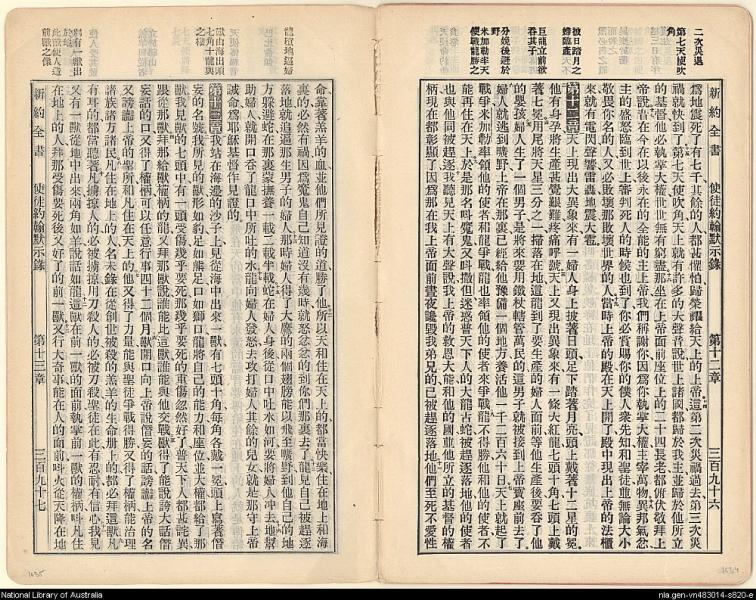 二次災過
第七天使吹角
披日踏月之婦臨產
巨龍立前欲吞其子
分娩後避於野
米加勒率天使戰龍勝之
新約全書 使徒約翰默示錄 第十二章 三百九十六
爲地震死了有七千其餘的人都甚懼怕歸榮耀給天上的上帝這第二次災禍過去第三次災
禍就快到了第七天使吹角天上就有許多的大聲音說世上諸國都歸於我主並歸於他所立
的基督他必執掌大權世世無有窮盡那坐在上帝面前座位上的二十四長老都俯伏敬拜上
帝說昔在今在以後永在的全能的主上帝我們稱謝你因爲你執掌大權主宰萬物異邦氣忿
主的盛怒臨到世上審判死人的時候也到了你必賞賜你的僕人衆先知和聖徒並無論大小
敬畏你名的人又必敗壞那敗壞世界的人當時上帝的殿在天上開了殿中現出上帝的法櫃
來就有電閃聲響雷轟地震大雹
第十二章天上現出大異象來有一婦人身上披著日頭足下踏著月亮頭上戴著十二星的冕
他有身孕將生產甚覺艱難疼痛呼號天上又現出異象來有一條大紅龍七頭十角七頭上戴
著七冕用尾將天星三分之一掃落在地這龍到了要生產的婦人面前等他生產後要吞了他
的嬰孩婦人生了一個男子是將來要用鐵杖轄管萬民的這男子就被接到上帝寶座前去了
婦人就逃到曠野上帝在那裏已經給他豫備一個地方養活他一千二百六十日天上就起了
戰爭米加勒率領他的使者和龍爭戰龍也率領他的使者來爭戰龍不得勝他和他的使者不
能再住在天上於是那名叫魔鬼又叫撒但迷惑普天下人的大龍古蛇被趕逐落地他的使者
也與他同被趕逐我聽見天上有大聲說我上帝的救恩大能和他的國並他所立的基督的權
柄現在都彰顯了因爲那在我上帝面前晝夜讒毀我弟兄的已被趕逐落地他們至死不愛性
龍遂地逼婦
獸由海出頭七角十龍與之權
別有一獸出於地
此獸使人造前獸之像
命靠著羔羊的血並他們所見證的道勝了他所以天和住在天上的都當快樂住在地上和海
裏的必然有禍因爲魔鬼自己知道沒有幾時就怒忿忿的到你們那裏去了龍見自己被趕逐
落地就追逼那生男子的婦人那時婦人得了大鷹的兩個翅膀能以飛至曠野到他自己的地
方躲避蛇在那裏蒙撫養一載二載半載蛇在婦人身後從口中吐水如河要將婦人冲去地幫
助婦人開口吞了龍口中所吐的水龍向婦人發怒去攻打婦人其餘的兒女就是那守上帝
誡命爲耶穌基督作見證的
第十三章我站在海邊的沙子上見從海中出來一獸有七頭十角每角各戴一冕頭上寫著僭
妄的名號我所見的獸形如豹足如熊足口如獅口龍將自己的能力和座位並大權都給了那
獸我見獸的七頭中有一頭受傷幾乎要死那幾乎要死的重傷忽然好了普天下人都甚詫異
跟從那獸拜那給獸權柄的龍又拜那獸說誰能比這獸誰能與他交戰獸得了能說誇大話僭
妄話的口又得了權柄可以任意行事四十二個月獸開口向上帝說僭妄的話謗讟上帝的名
又謗讟上帝的聖所和凡住在天上的他又得了力量能與聖徒爭戰得勝又得了權柄能治理
諸族諸方諸民凡住在地上的人名未錄在從創世被殺的羔羊的生命册上的都必拜這獸凡
有耳的都當聽著凡擄掠人的必被擄掠用刀殺人的必被刀殺聖徒在此有忍耐有信心我見
又有一獸從地中出來兩角如羊說話如龍這獸在前一獸的面前執掌前一獸的權柄叫凡住
在地上的人拜那受傷要死後又好了的前一獸又行大奇事能在人的面前叫火從天降在地
新約全書 使徒約翰默示錄 第十三章 三百九十七
National Library of Australia
nla.gen-vn483014-s820-e